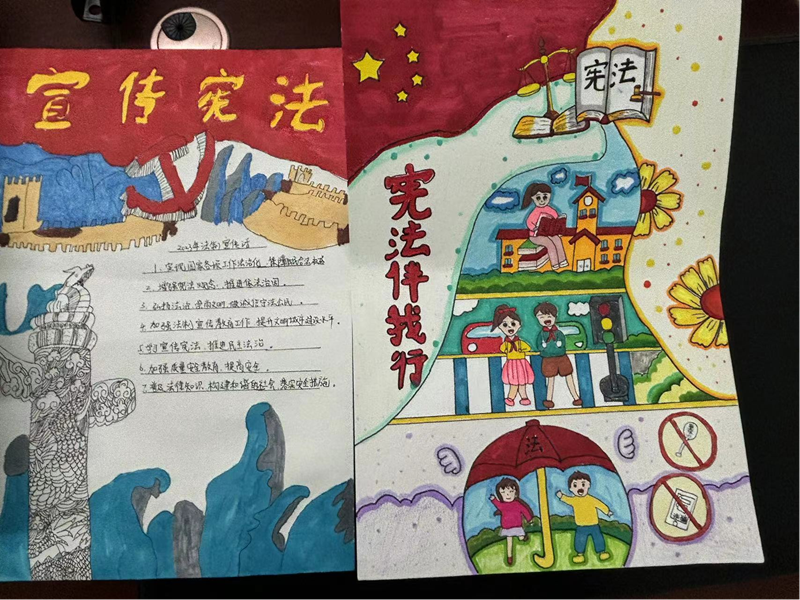 宣传宪法
2023年法制宣传语
1. 实现国家各项工作法治化，保障
2. 增强宪法观念，推进依法治国。
3. 弘扬法治，崇尚文明，做诚信守法公民。
4. 加强法制宣传教育工作，提升文明城市建设水平。
5. 学习宣传宪法，推进民主法治。
6. 加强质量安全教育，提高安全。
7. 普及法律知识，构建和谐社会，落实安全措施。
宪法
宪法伴我行
法